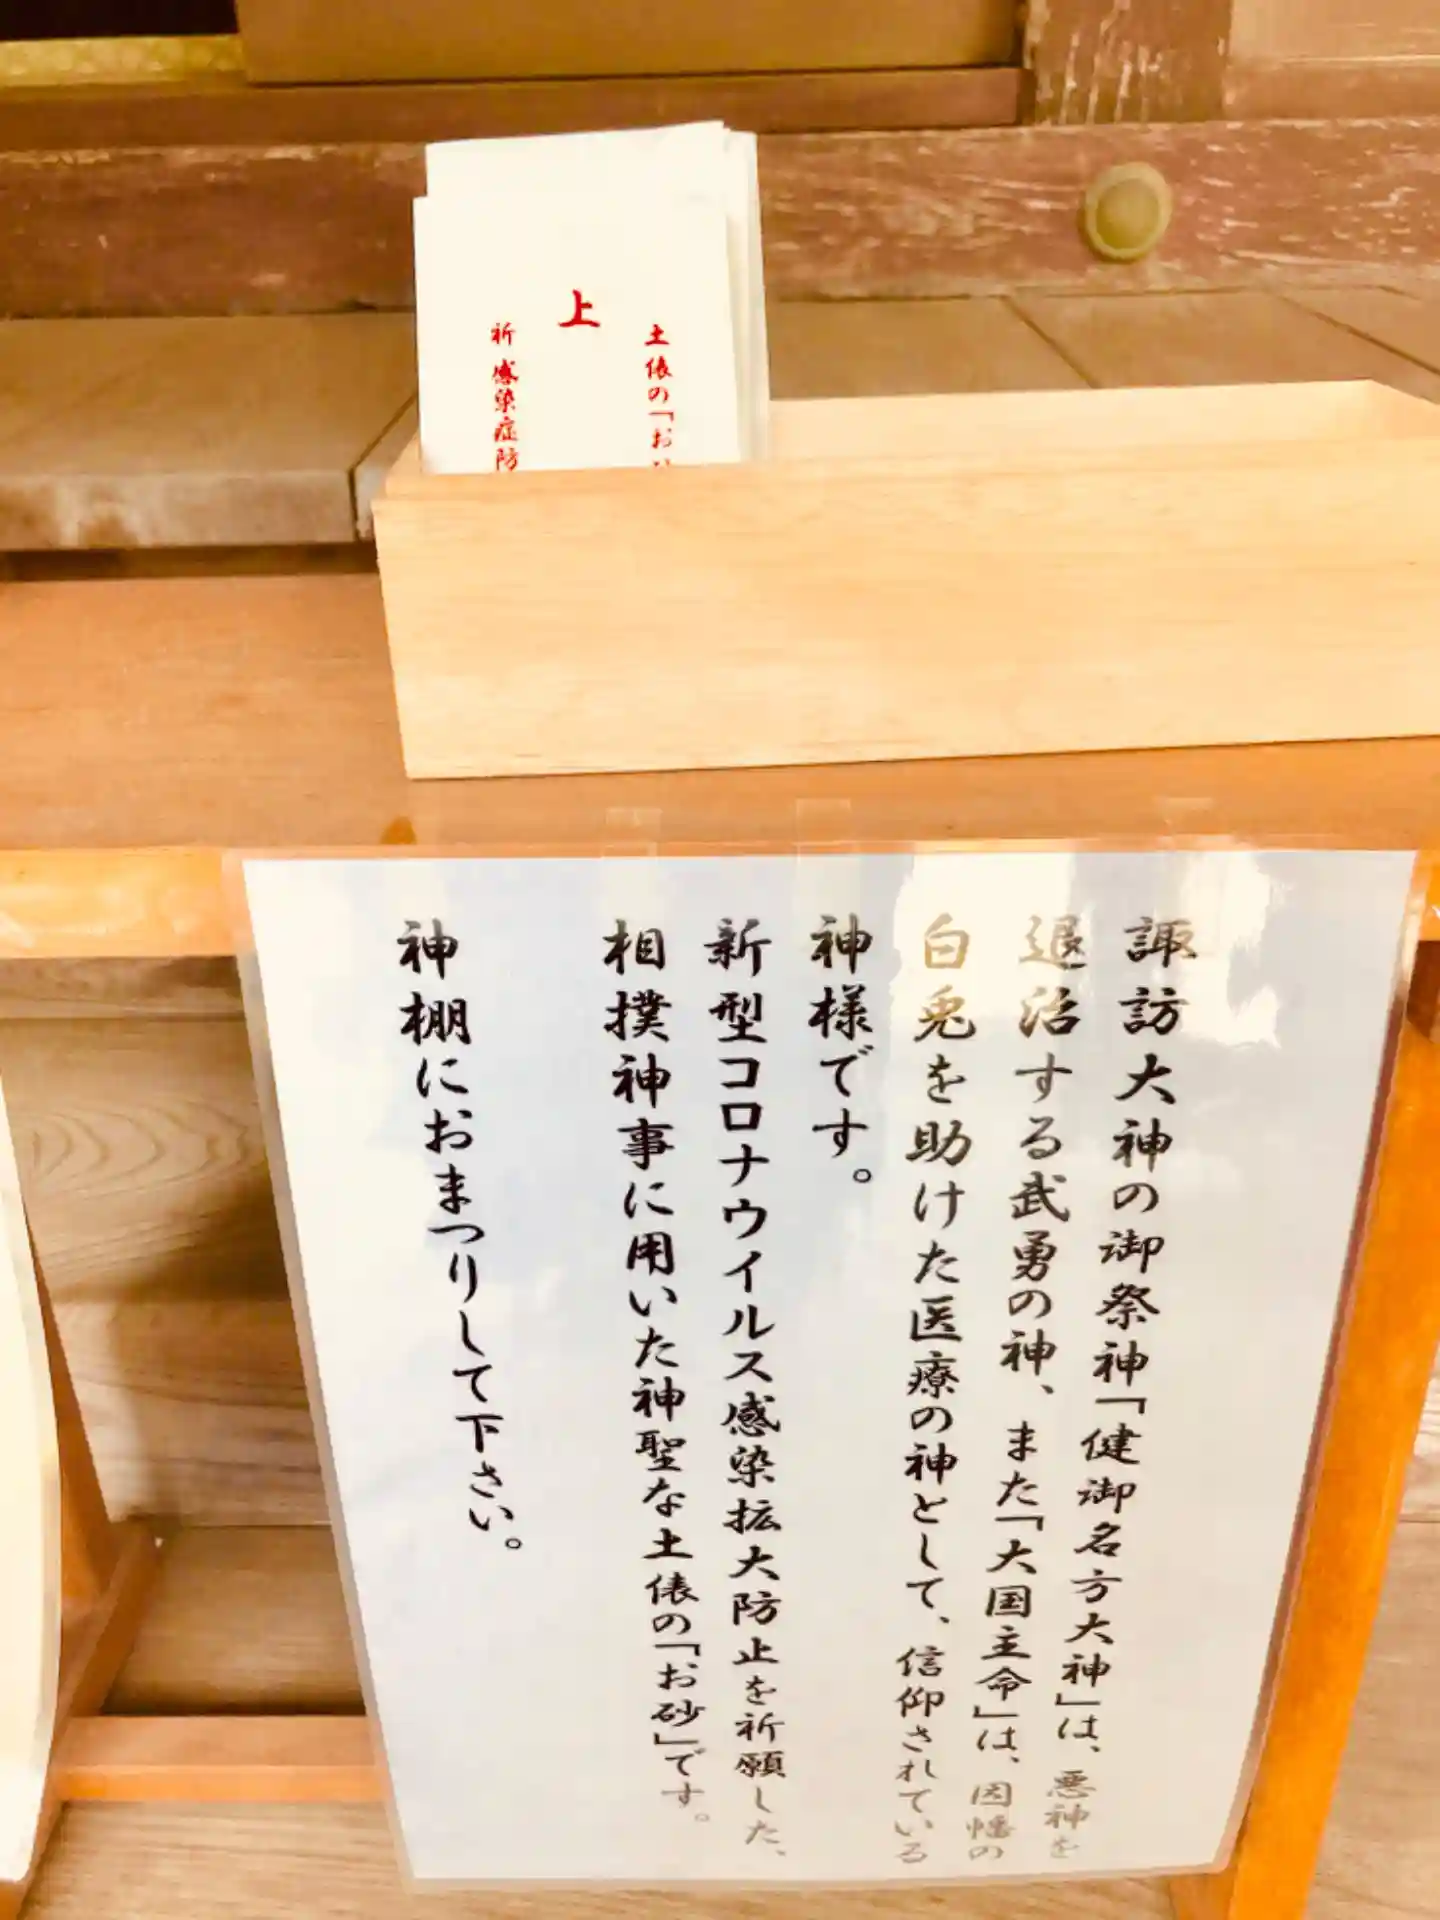 土俵の「お
上
祈 感染症防
諏訪大神の御祭神「健御名方大神」は、悪神を
退治する武勇の神、また「大国主命」は、因幡の
白兎を助けた医療の神として、信仰されている
神様です。
新型コロナウイルス感染拡大防止を祈願した、
相撲神事に用いた神聖な土俵の「お砂」です。
神棚におまつりして下さい。